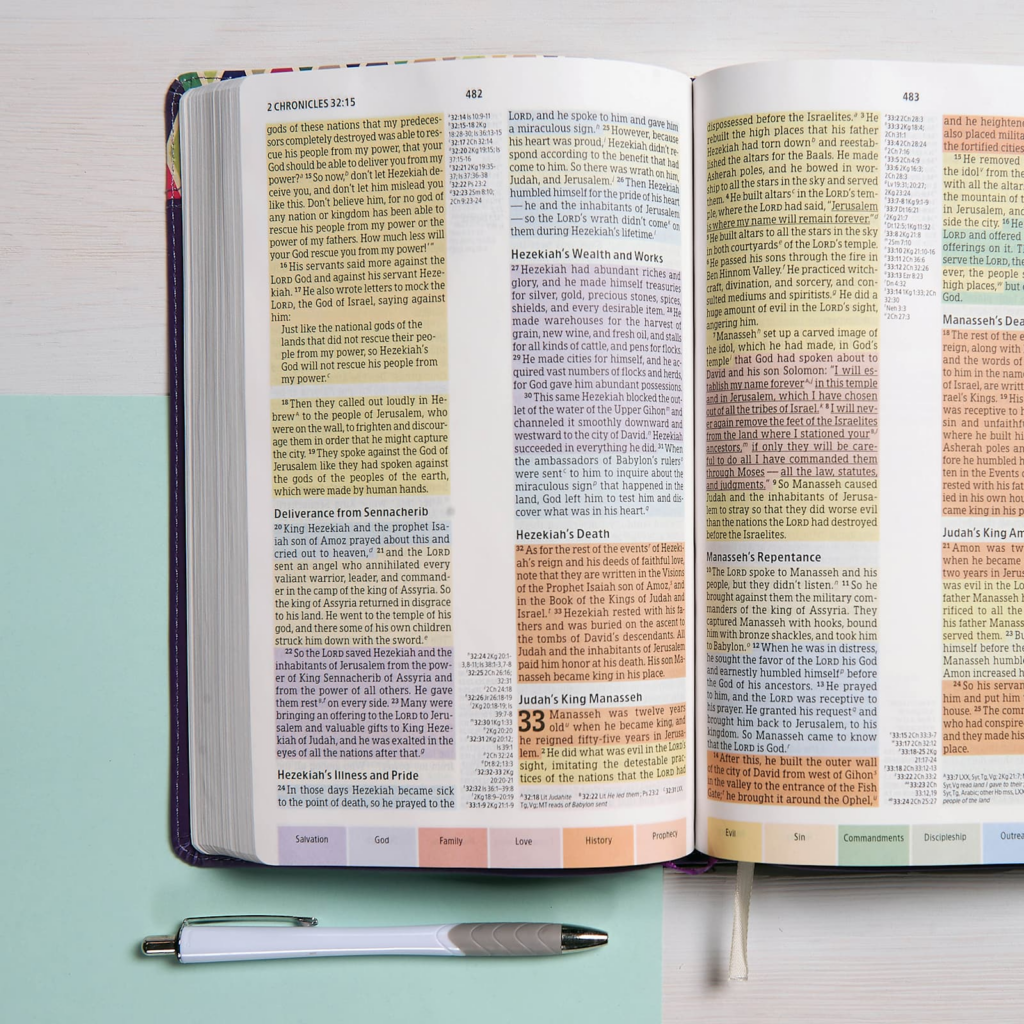 2 CHRONICLES 32:15
482
gods of these nations that my predeces-
sors completely destroyed was able to res-
cue his people from my power, that your
God should be able to deliver you from my
power? 15 So now, don't let Hezekiah de-
ceive you, and don't let him mislead you
like this. Don't believe him, for no god of
any nation or kingdom has been able to
rescue his people from my power or the
power of my fathers. How much less will
your God rescue you from my power!'"
16 His servants said more against the
LORD God and against his servant Heze-
kiah. 17 He also wrote letters to mock the
LORD, the God of Israel, saying against
him:
Just like the national gods of the
lands that did not rescue their peo-
ple from my power, so Hezekiah's
God will not rescue his people from
my power.
18 Then they called out loudly in He-
brew to the people of Jerusalem, who
were on the wall, to frighten and discour-
age them in order that he might capture
the city. 19 They spoke against the God of
Jerusalem like they had spoken against
the gods of the peoples of the earth,
which were made by human hands.
Deliverance from Sennacherib
20 King Hezekiah and the prophet Isa-
iah son of Amoz prayed about this and
cried out to heaven, 21 and the LORD
sent an angel who annihilated every
valiant warrior, leader, and command-
er in the camp of the king of Assyria. So
the king of Assyria returned in disgrace
to his land. He went to the temple of his
god, and there some of his own children
struck him down with the sword.
22 So the LORD saved Hezekiah and the
inhabitants of Jerusalem from the pow-
er of King Sennacherib of Assyria and
from the power of all others. He gave
them rest on every side. 23 Many were
bringing an offering to the LORD to Jeru-
salem and valuable gifts to King Heze-
kiah of Judah, and he was exalted in the
eyes of all the nations after that.
Hezekiah's Illness and Pride
24 In those days Hezekiah became sick
to the point of death, so he prayed to the
LORD, and he spoke to him and gave him
a miraculous sign. 25 However, because
his heart was proud, Hezekiah didn't re-
spond according to the benefit that had
come to him. So there was wrath on him,
Judah, and Jerusalem. 26 Then Hezekiah
humbled himself for the pride of his heart
— he and the inhabitants of Jerusalem
— so the LORD's wrath didn't come on
them during Hezekiah's lifetime.
Hezekiah's Wealth and Works
27 Hezekiah had abundant riches and
glory, and he made himself treasuries
for silver, gold, precious stones, spices,
shields, and every desirable item. 28 He
made warehouses for the harvest of
grain, new wine, and fresh oil, and stalls
for all kinds of cattle, and pens for flocks.
29 He made cities for himself, and he ac-
quired vast numbers of flocks and herds,
for God gave him abundant possessions.
30 This same Hezekiah blocked the out-
let of the water of the Upper Gihon and
channeled it smoothly downward and
westward to the city of David. Hezekiah
succeeded in everything he did. 31 When
the ambassadors of Babylon's rulers
were sent to him to inquire about the
miraculous sign that happened in the
land, God left him to test him and dis-
cover what was in his heart.
Hezekiah's Death
32 As for the rest of the events of Hezeki-
ah's reign and his deeds of faithful love,
note that they are written in the Visions
of the Prophet Isaiah son of Amoz, and
in the Book of the Kings of Judah and
Israel. 33 Hezekiah rested with his fa-
thers and was buried on the ascent to
the tombs of David's descendants. All
Judah and the inhabitants of Jerusalem
paid him honor at his death. His son Ma-
nasseh became king in his place.
Judah's King Manasseh
33 Manasseh was twelve years
old when he became king, and
he reigned fifty-five years in Jerusa-
lem. 2 He did what was evil in the LORD's
sight, imitating the detestable prac-
tices of the nations that the LORD had
Salvation
God
Family
Love
History
Prophecy
483
dispossessed before the Israelites. 3 He
rebuilt the high places that his father
Hezekiah had torn down and reestab-
lished the altars for the Baals. He made
Asherah poles, and he bowed in wor-
ship to all the stars in the sky and served
them. 4 He built altars in the LORD's tem-
ple, where the LORD had said, "Jerusalem
is where my name will remain forever."
5 He built altars to all the stars in the sky
in both courtyards of the LORD's temple.
6 He passed his sons through the fire in
Ben Hinnom Valley. He practiced witch-
craft, divination, and sorcery, and con-
sulted mediums and spiritists. He did a
huge amount of evil in the LORD's sight,
angering him.
7 Manasseh set up a carved image of
the idol, which he had made, in God's
temple that God had spoken about to
David and his son Solomon: "I will es-
tablish my name forever in this temple
and in Jerusalem, which I have chosen
out of all the tribes of Israel. 8 I will nev-
er again remove the feet of the Israelites
from the land where I stationed your
ancestors, if only they will be care-
ful to do all I have commanded them
through Moses — all the law, statutes,
and judgments." 9 So Manasseh caused
Judah and the inhabitants of Jerusa-
lem to stray so that they did worse evil
than the nations the LORD had destroyed
before the Israelites.
Manasseh's Repentance
10 The LORD spoke to Manasseh and his
people, but they didn't listen. 11 So he
brought against them the military com-
manders of the king of Assyria. They
captured Manasseh with hooks, bound
him with bronze shackles, and took him
to Babylon. 12 When he was in distress,
he sought the favor of the LORD his God
and earnestly humbled himself before
the God of his ancestors. 13 He prayed
to him, and the LORD was receptive to
his prayer. He granted his request and
brought him back to Jerusalem, to his
kingdom. So Manasseh came to know
that the LORD is God.
14 After this, he built the outer wall
of the city of David from west of Gihon
in the valley to the entrance of the Fish
Gate; he brought it around the Ophel,
and he heightene
also placed militar
the fortified cities
15 He removed
the idol from the
with all the altar
mountain of t
in Jerusalem, and
side the city. 16 He
LORD and offered
offerings on it. T
serve the LORD, the
ever, the people s
high places, but
God.
Manasseh's Dea
18 The rest of the e
reign, along with
and the words of
to him in the name
of Israel, are writt
rael's Kings. 19 His
was receptive to h
sin and unfaithfu
where he built hi
Asherah poles an
fore he humbled h
ten in the Events o
rested with his fat
ied in his own hou
came king in his p
Judah's King Am
21 Amon was tw
when he became
two years in Jerus
was evil in the Lor
father Manasseh h
rificed to all the
his father Manass
served them. 23 Bu
himself before the
Manasseh humbl
Amon increased h
24 So his servan
him and put him
house. 25 The com
who had conspire
they made his s
place.
Evil
Sin
Commandments
Discipleship
Outrea